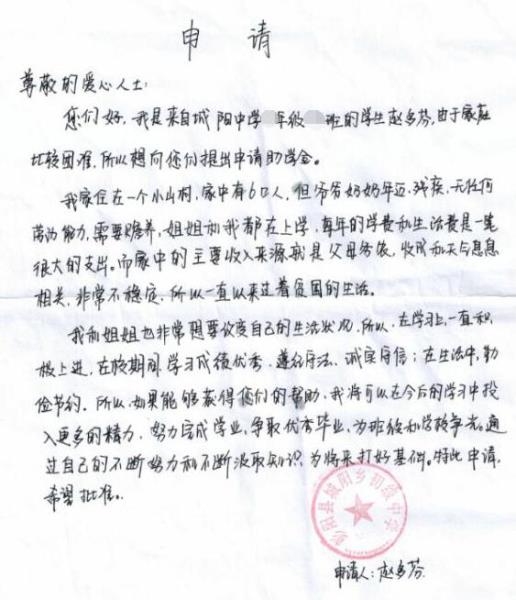 申请
尊敬的爱心人士:
您们好,我是来自城阳中学 年级 班的学生赵多芬,由于家庭
比较困难,所以想向您们提出申请助学金。
我家住在一个小山村,家中有6口人,但爷爷奶奶年迈,残疾,无任何
劳动能力,需要赡养,姐姐和我都在上学,每年的学费和生活费是一笔
很大的支出。而家中的主要收入来源就是父母务农,收成和天气息息
相关,非常不稳定,所以一直以来过着贫困的生活。
我和姐姐也非常想要改变自己的生活状况,所以,在学习上,一直积
极上进,在校期间,学习成绩优秀,遵纪守法,诚实守信;在生活中,勤
俭节约。所以,如果能够获得您们的帮助,我将可以在今后的学习中投
入更多的精力,努力完成学业,争取优秀毕业,为班级和学校争光。通
过自己的不断努力和不断汲取知识,为将来打好基础。特此申请,
希望批准。
彭阳县城阳乡初级中学
申请人:赵多芬